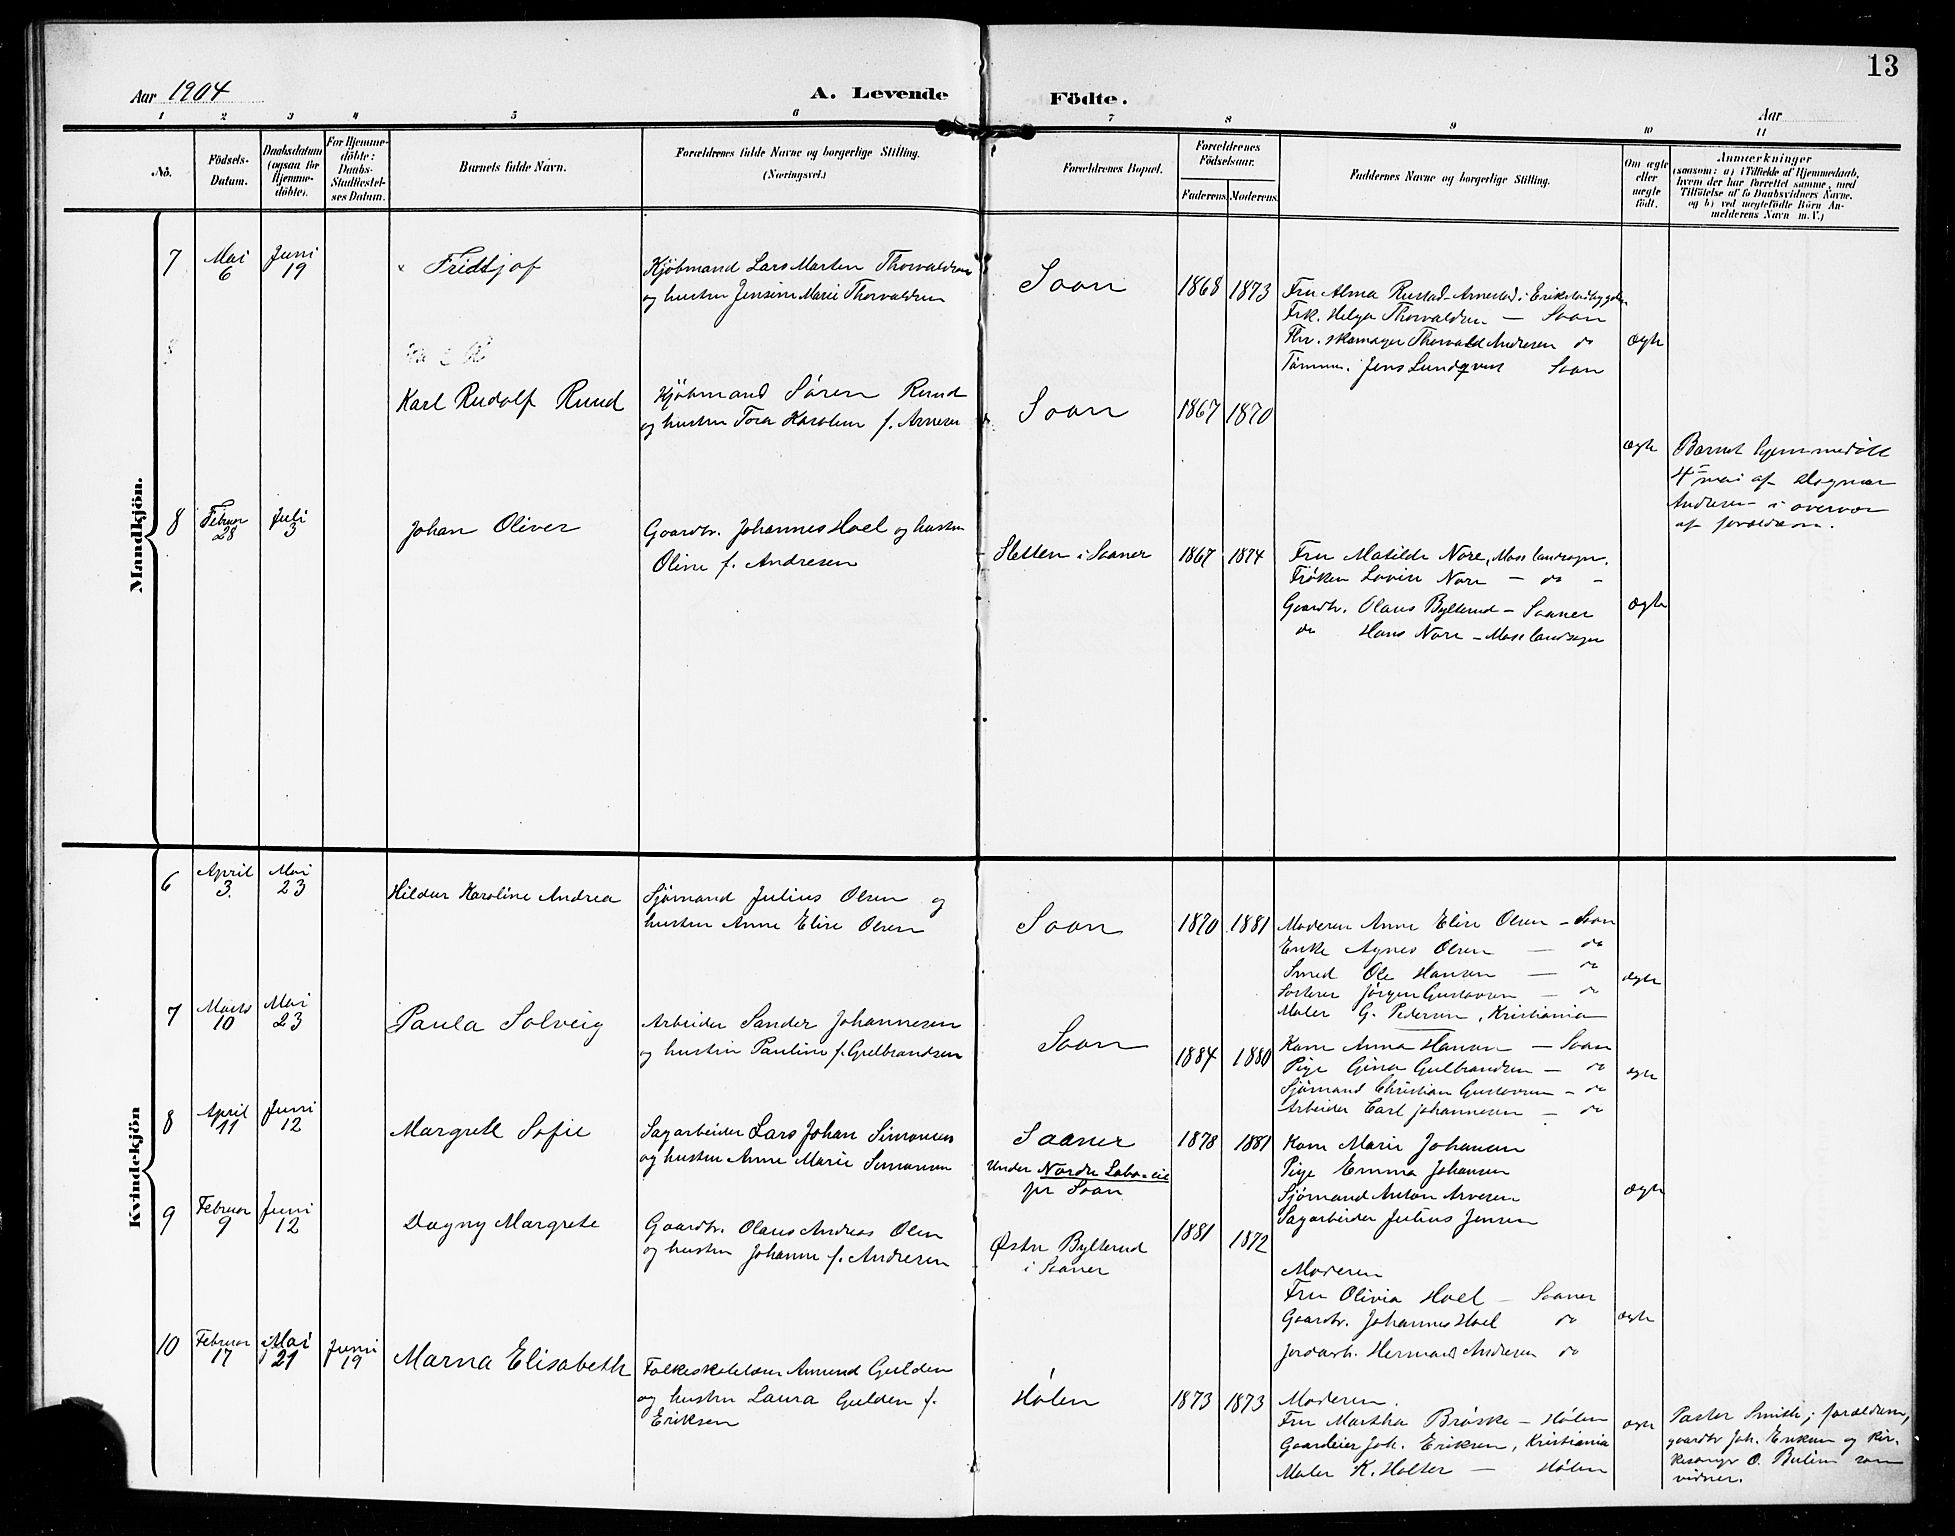 13
Aar 1904
A. Levende Födte.
Aar
1 2 3 4 5 6 7 8 9 10 11
No.
Födsels-Datum.
Daabsdatum (ogsaa for Hjemme-döbte).
For Hjemme-döbte: Daabs-Stadfæstel-ses Datum.
Barnets fulde Navn.
Forældrenes fulde Navne og borgerlige Stilling.
(Næringsvei.)
Forældrenes Bopæl.
Forældrenes Födselsaar.
Faderens. Moderens.
Faddernes Navne og borgerlige Stilling.
Om ægte eller uægte födt.
Anmærkninger
(saasom: a) i Tilfælde af Hjemmedaab,
hvem der har forrettet samme, med
Tilföielse af to Daabsvidners Navne.
og b) ved uegtefödte Börn An-
melderens Navn m. V.)
Mandkjön.
7 Mai 6 Juni 19
Fridtjof
Kjøbmand Lars Marten Thorvaldsen
og hustru Jensine Marie Thorvaldsen
Soon
1868 1873
Fru Alma Rustad - Arnestad i
Frk. Helga Thorvaldsen — Soon
Skomager Thorvald Andresen do
Jens Lundqvist Soon
ægte
8
Karl Rudolf Ruud
Kjöbmand Sören Ruud
og hustru Tora Karoline f. Arnesen
Soon
1867 1870
ægte
Barnet hjemmedøbt
4de mai af Dagmar
Andersen i overvær
af forældrene.
8 Februar 28 Juli 3
Johan Oliver
Gaardbr. Johannes Hoel og hustru
Oline f. Andresen
Sletten i Saaner
1867 1874
Fru Matilde Nore, Moss landsogn.
Frøken Lovise Nore — do —
Gaardbr. Olaus Bylterud — Saaner
do Hans Nore — Moss landsogn
ægte
Kvindekjön
6 April 3. Mai 23
Hildur Karoline Andrea
Sjømand Julius Olsen og
hustru Anne Elise Olsen
Soon
1870 1881
Moderen Anne Elise Olsen — Soon
Enke Agnes Olsen — do
Smed Ole Hansen — do
Sorterer Jørgen Gustavsen — do
Maler G. Pedersen, Kristiania
ægte
7 Marts 10 Mai 23
Paula Solveig
Arbeider Sander Johannesen
og hustru Pauline f. Gulbrandsen
Soon
1884 1880
Kone Anna Hansen — Soon
Pige Gina Gulbrandsen — do
Sjømand Christian Gustavsen — do
Arbeider Carl Johannesen — do
ægte
8 April 11 Juni 12
Margrete Sofie
Sagarbeider Lars Johan Simonsen
og hustru Anne Marie Simonsen
Saaner
Under Nordre Labo-eie
pr Soon
1878 1881
Kone Marie Johansen
Pige Emma Johansen
Sjømand Anton Arvesen
Sagarbeider Julius Jensen
ægte
9 Februar 9 Juni 12
Dagny Margrete
Gaardbr. Olaus Andreas Olsen
og hustru Johanne f. Andresen
Østre Bylterud
i Saaner
1881 1872
Moderen
Fru Olivia Hoel — Saaner
Gaardbr. Johannes Hoel do
Jordarb. Herman Andresen do
ægte
10 Februar 17 Mai 21 Juni 19
Marna Elisabeth
Folkeskolelærer Amund Gulden
og hustru Laura Gulden f.
Eriksen
Hølen
1873 1873
Moderen.
Fru Martha Brøske — Hølen
Gaardeier Joh. Eriksen, Kristiania
Maler K. Holter — Hølen
ægte
Pastor Smith; forældrene,
gaardbr Joh. Eriksen og kir-
kesanger O. som
vidner.